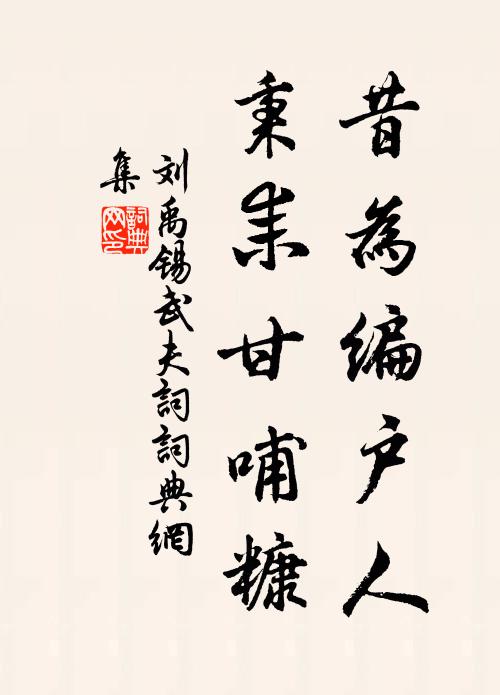 昔為編户人
秉耒甘哺糠
刘禹锡武夫詞詞典網
集
詞典网印